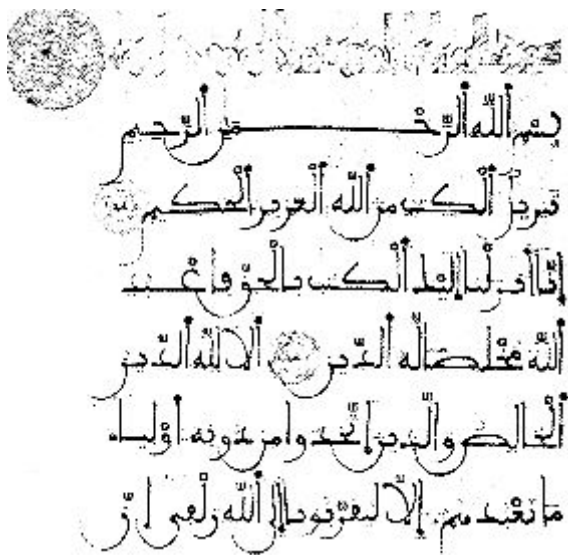 بسم الله الرحمن الرحيم
تنزيل الكتب من الله العزيز الحكيم
إنا أنزلنا إليك الكتب بالحق فاعبد
الله مخلصا له الدين ألا لله الدين
الخالص والذين اتخذوا من دونه أولياء
ما نعبدهم إلا ليقربونا إلى الله زلفى إن